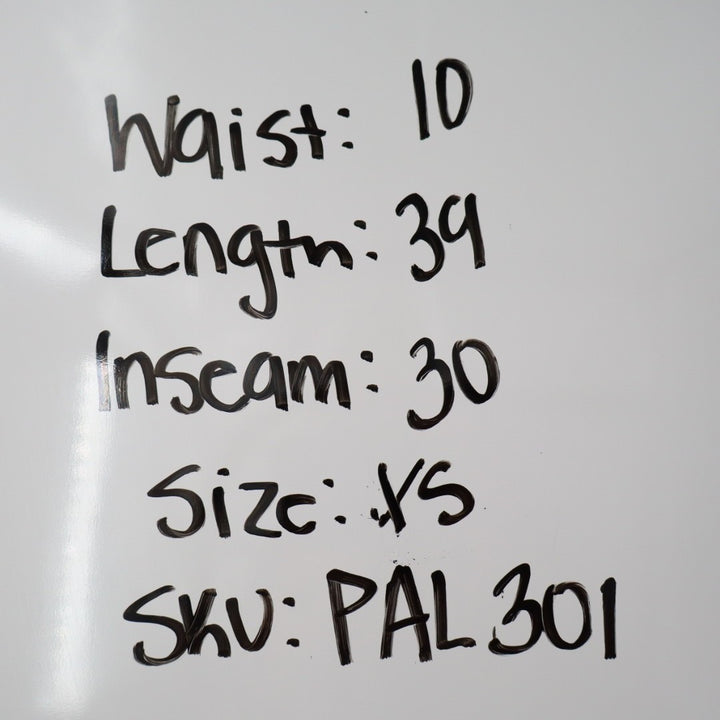 Waist: 10
Length: 39
Inseam: 30
Size: XS
SKU: PAL301